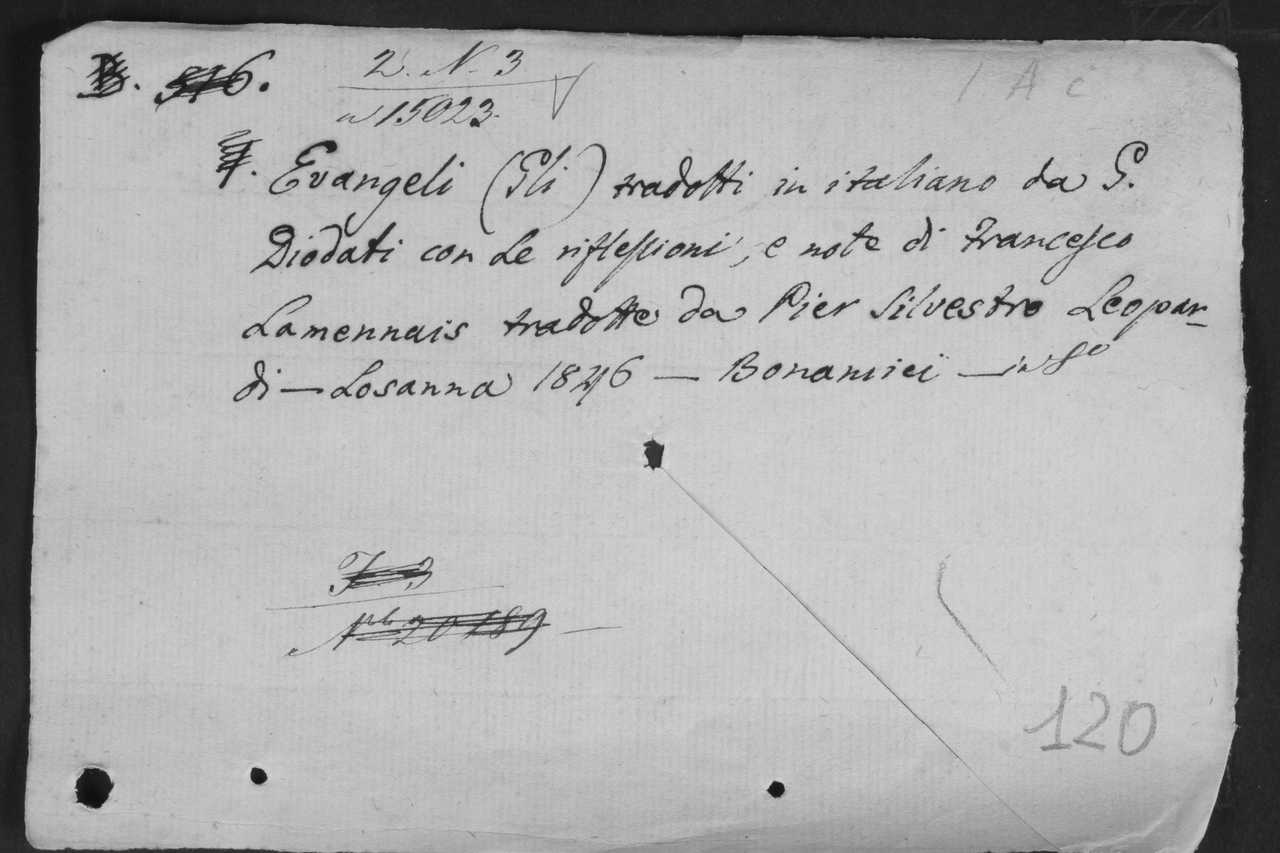 B. 316.
2. N. 3
n 15023.
1 A c
Evangeli (Gli) tradotti in italiano da G.
Diodati con le riflessioni, e note di Francesco
Lamennais tradotte da Pier Silvestro Leopar-
di — Losanna 1846 — Bonamici — in 8°
20189
120